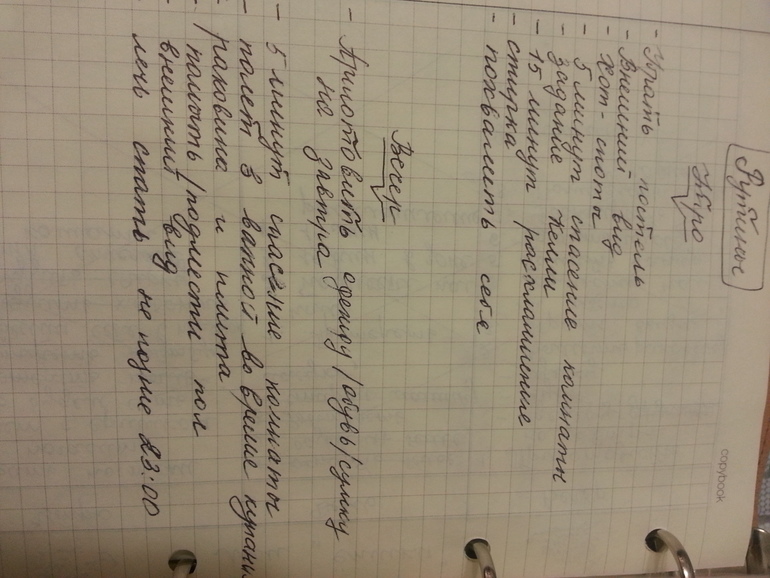 Рутины
Утро
- Убрать постель
- Внешний вид
- Хот-споты
- 5 минут спасение комнаты
- Задание Келли
- 15 минут расхламление
- стирка
- похвалить себя
Вечер
- Приготовить одежду/обувь/сумку
на завтра
- 5 минут спасение комнаты
- полет в ванной во время купани
- раковина и плита
- помыть/подмести пол
- внешний вид
- лечь спать не позже 23:00
copybook